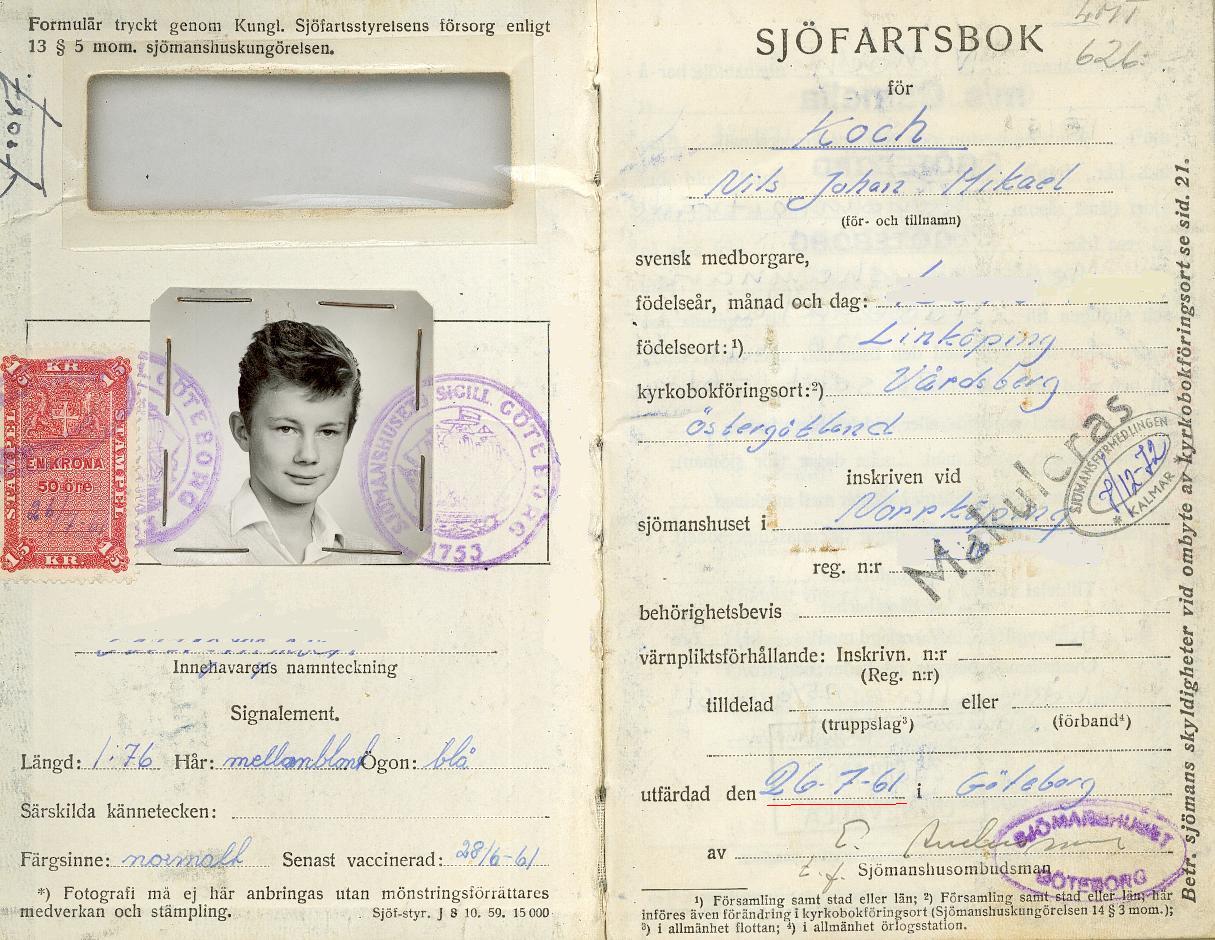 Formulär tryckt genom Kungl. Sjöfartsstyrelsens försorg enligt
13 § 5 mom. sjömanshuskungörelsen.
KR
STAMPEL
EN KRONA
50 öre
KR.
GÖTEBORG
SJÖMANSHUSETS SIGILL GÖTEBORG
1753
Innehavarens namnteckning
Signalement.
Längd: 1.76 Hår: mellanblond Ögon: blå
Särskilda kännetecken:
Färgsinne: normalt Senast vaccinerad: 28/6-61
*) Fotografi må ej här anbringas utan mönstringsförrättares
medverkan och stämpling. Sjöf-styr. J 8 10. 59. 15 000
626.
SJÖFARTSBOK
för
Koch
Nils Johan Mikael
(för- och tillnamn)
svensk medborgare,
födelseår, månad och dag:
födelseort:¹) Linköping
kyrkobokföringsort:²) Vårdsberg
Östergötland
inskriven vid
sjömanshuset i Norrköping
reg. n:r
Makuleras
SJÖMANSFÖRMEDLINGEN
7/12-72
* KALMAR *
behörighetsbevis
värnpliktsförhållande: Inskrivn. n:r —
(Reg. n:r)
tilldelad eller
(truppslag³) (förband⁴)
utfärdad den 26-7-61 i Göteborg
av E.
t.f. Sjömanshusombudsman
SJÖMANSHUSET
GÖTEBORG
¹) Församling samt stad eller län; ²) Församling samt stad eller län; här
införes även förändring i kyrkobokföringsort (Sjömanshuskungörelsen 14 § 3 mom.);
³) i allmänhet flottan; ⁴) i allmänhet örlogsstation.
Betr. sjömans skyldigheter vid ombyte av kyrkobokföringsort se sid. 21.